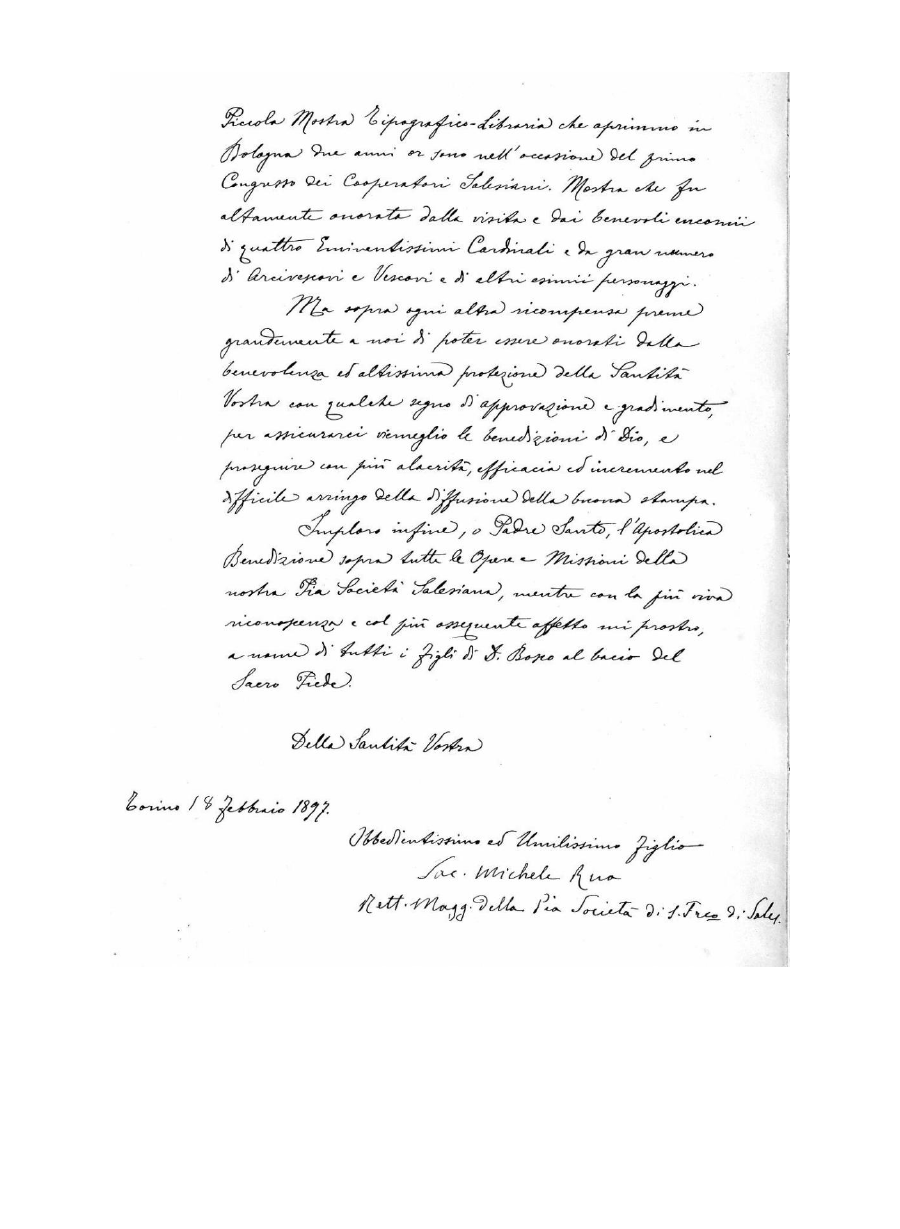 Piccola Mostra Tipografico-Libraria che aprimmo in
Bologna due anni or sono nell'occasione del primo
Congresso dei Cooperatori Salesiani. Mostra che fu
altamente onorata dalla visita e dai benevoli encomii
di quattro Eminentissimi Cardinali e da gran numero
di Arcivescovi e Vescovi e di altri esimii personaggi.
Ma sopra ogni altra ricompensa preme
grandemente a noi di poter essere onorati dalla
benevolenza ed altissima protezione della Santità
Vostra con qualche segno di approvazione e gradimento,
per assicurarci viemeglio le benedizioni di Dio, e
proseguire con più alacrità, efficacia ed incremento nel
difficile arringo della diffusione della buona stampa.
Imploro infine, o Padre Santo, l'Apostolica
Benedizione sopra tutte le Opere e Missioni della
nostra Pia Società Salesiana, mentre con la più viva
riconoscenza e col più ossequente affetto mi prostro,
a nome di tutti i figli di D. Bosco al bacio del
Sacro Piede.
Della Santità Vostra
Torino 18 Febbraio 1897.
Obbedientissimo ed Umilissimo Figlio
Sac. Michele Rua
Rett. Magg. della Pia Società di S. Fr.co di Sales.